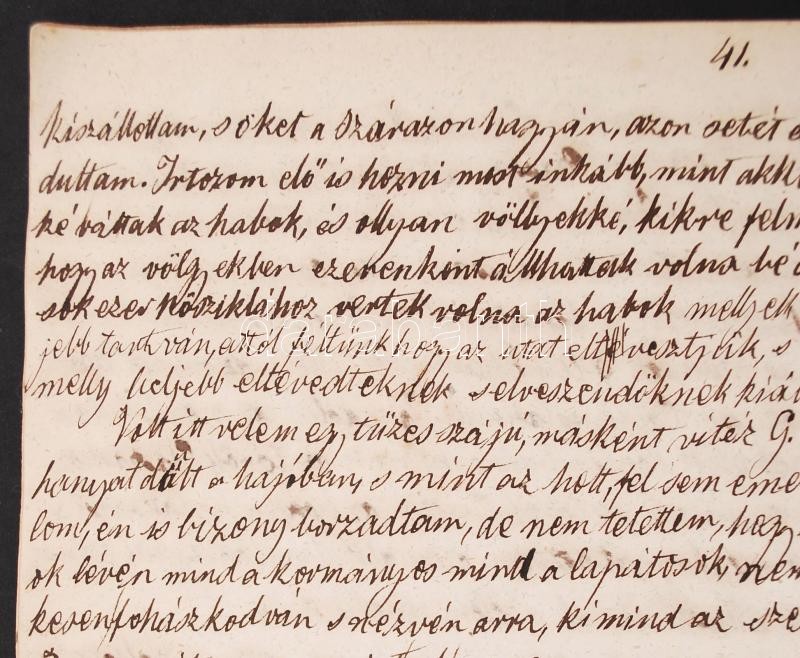 41.
kiszállottam, s őket a szárazon hagyván, azon setét e
duttam. Irtozom elő is hozni most inkább, mint akk
ké váttak az habok, és ollyan völgyekké, kikre feln
hogy az völgyekben ezerenként állhattak volna bé
sok ezer kősziklához vertek volna az habok mellyek
jebb tartván, attól féltünk hogy az utat eltévesztjük, s
melly beljebb eltévedteknek s elveszendőknek kiál
Volt itt velem egy tüzes szájú, másként vitéz G.
hanyat dőlt a hajóban, s mint az holt, fel sem eme
lom, én is bizony borzadtam, de nem tetettem, hogy
ok lévén mind a kormányos mind a lapátosok, nem
keven fohászkodván s nézvén arra, ki mind az sze